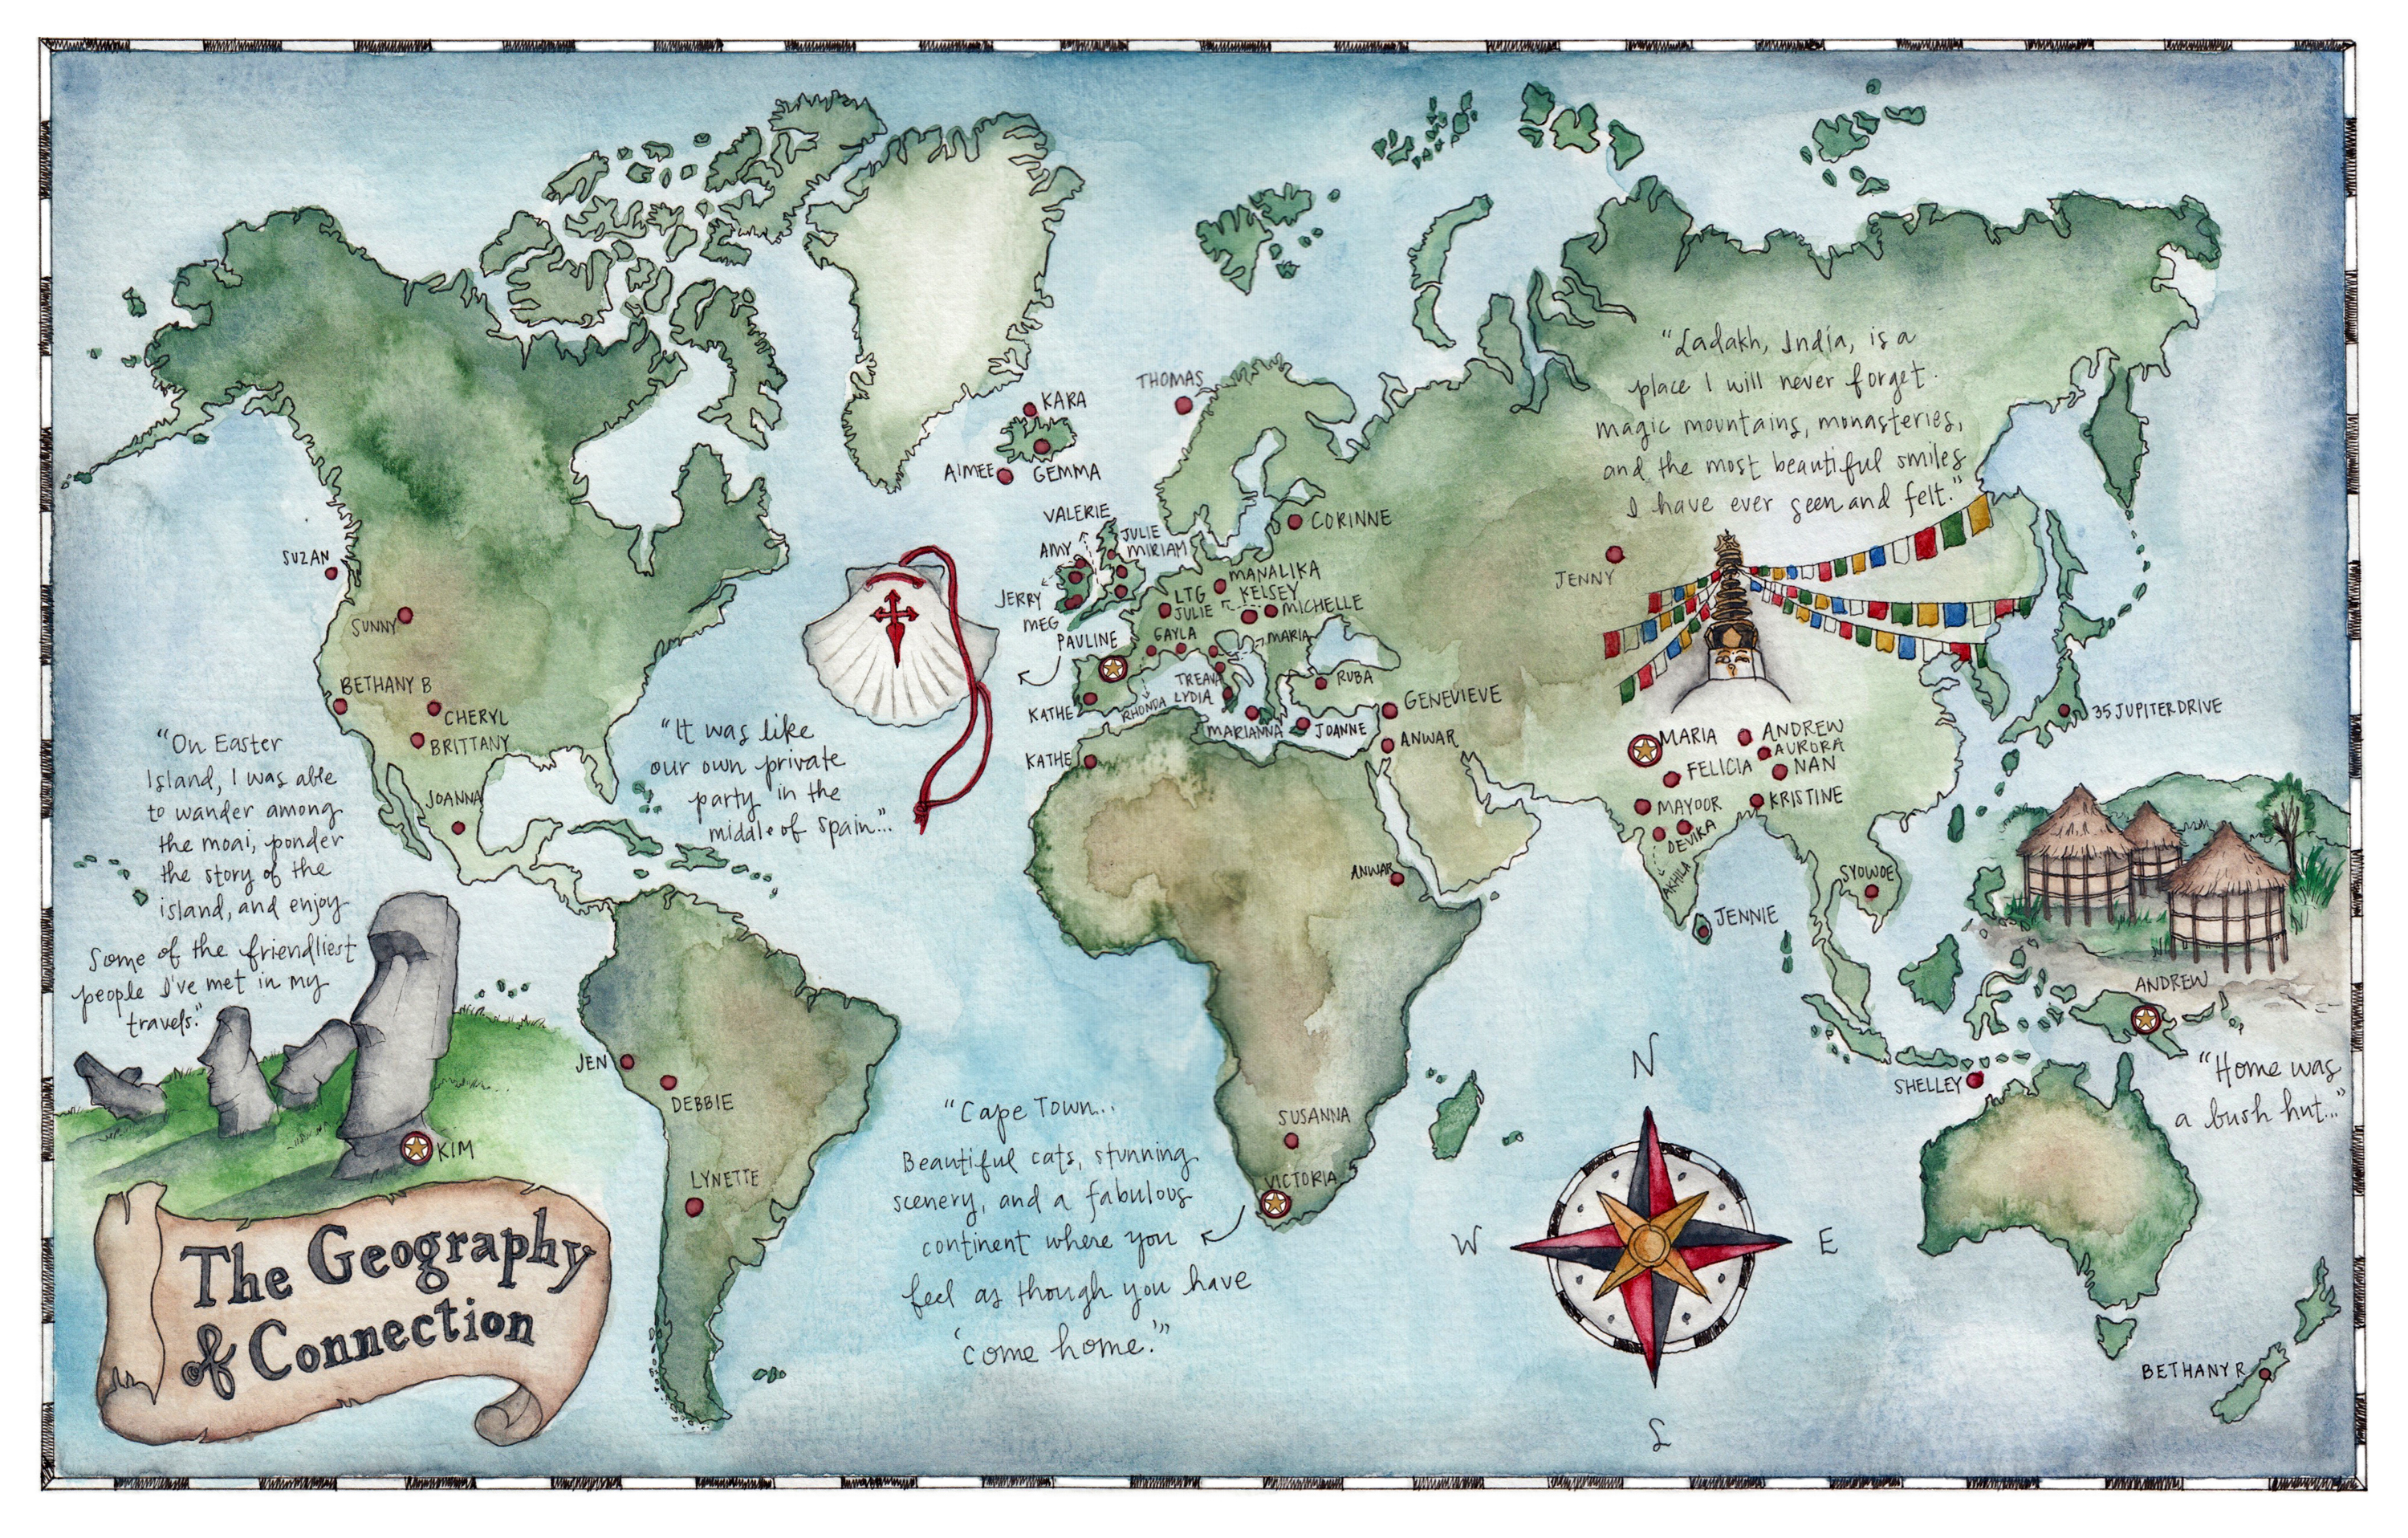 "Ladakh, India, is a
place I will never forget.
magic mountains, monasteries,
and the most beautiful smiles
I have ever seen and felt."
THOMAS
KARA
AIMEE
GEMMA
CORINNE
VALERIE
JULIE
MIRIAM
AMY
JERRY
MEG
PAULINE
MANALIKA
LTG
KELSEY
JULIE
MICHELLE
GAYLA
MARIA
TREAVA
LYDIA
RUBA
KATHE
RHONDA
MARIANNA
JOANNE
GENEVIEVE
ANWAR
KATHE
ANWAR
SUZAN
SUNNY
BETHANY B
CHERYL
BRITTANY
JOANNA
"On Easter
Island, I was able
to wander among
the moai, ponder
the story of the
island, and enjoy
some of the friendliest
people I've met in my
travels."
"It was like
our own private
party in the
middle of Spain..."
JENNY
MARIA
ANDREW
AURORA
FELICIA
NAN
MAYOOR
KRISTINE
DEVIKA
AKHILA
JENNIE
SYOWOE
35JUPITERDRIVE
ANDREW
"Home was
a bush hut..."
SHELLEY
JEN
DEBBIE
LYNETTE
KIM
"Cape Town...
Beautiful cats, stunning
scenery, and a fabulous
continent where you
feel as though you have
'come home.'"
SUSANNA
VICTORIA
N
W
E
S
BETHANY R
The Geography
of Connection